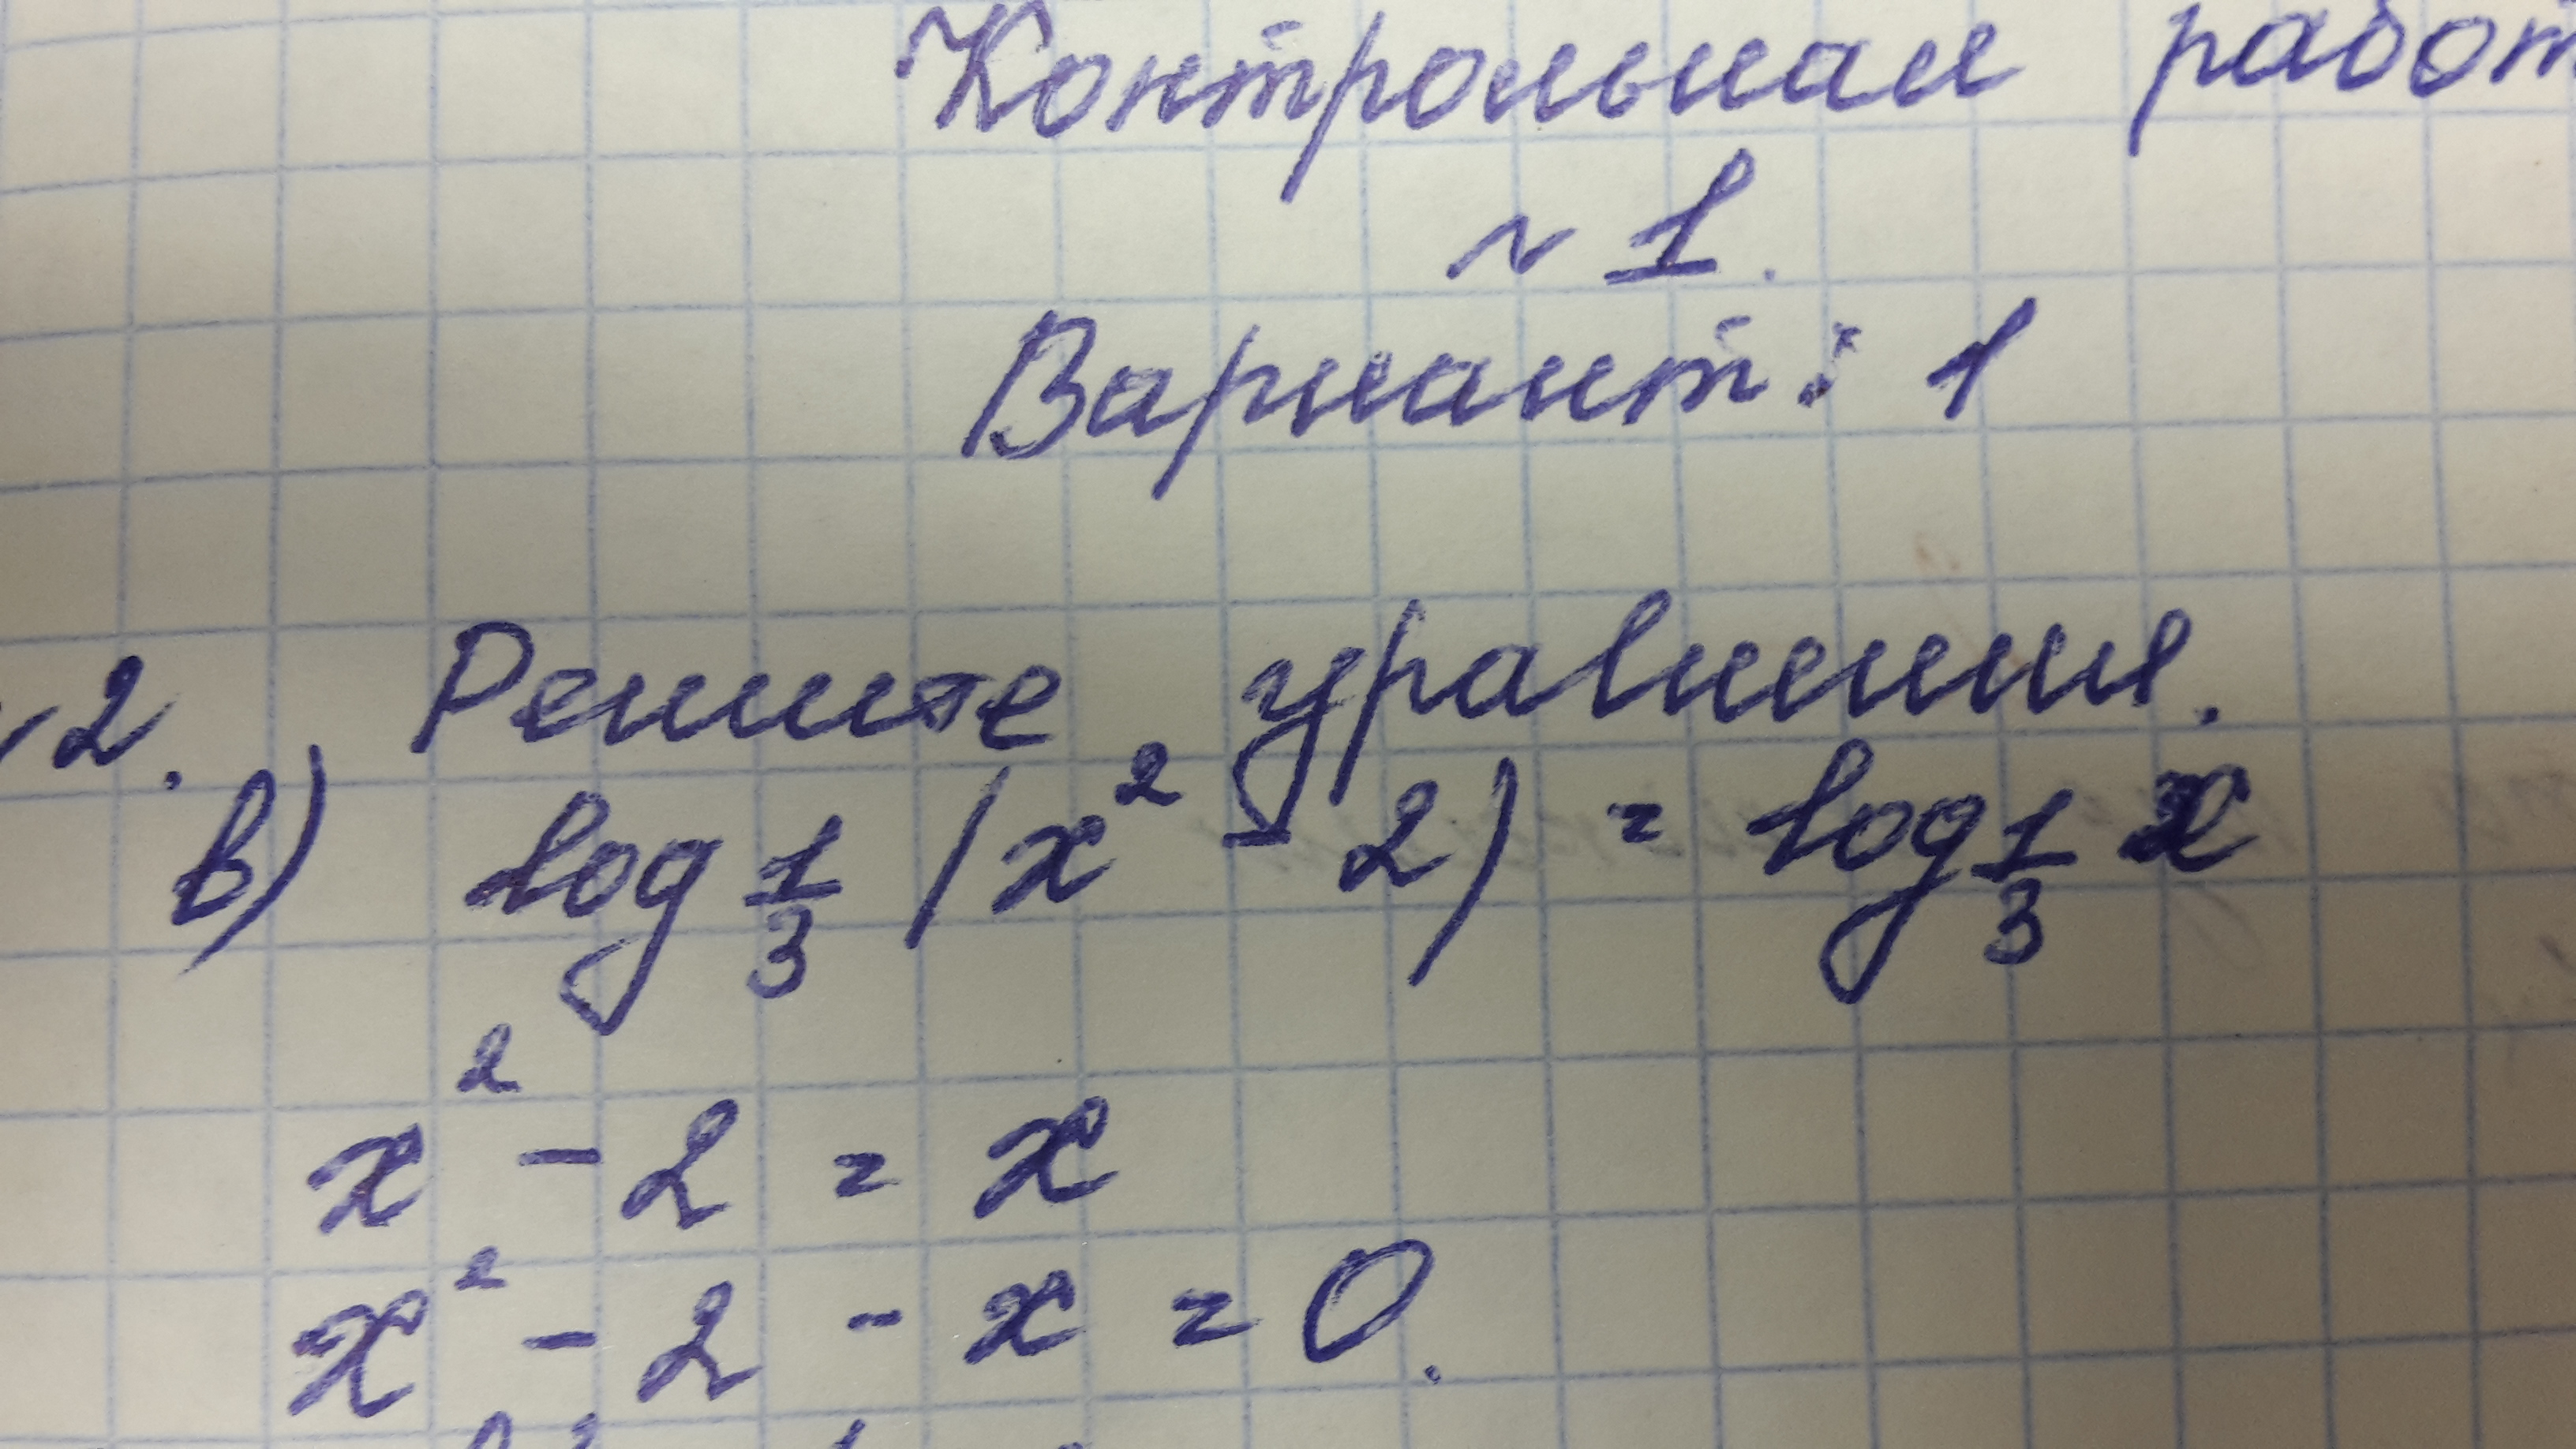 Контрольная работ
~ 1.
Вариант: 1
2. Решите уравнения.
в) log 1/3 (x² - 2) = log 1/3 x
x² - 2 = x
x² - 2 - x = 0.